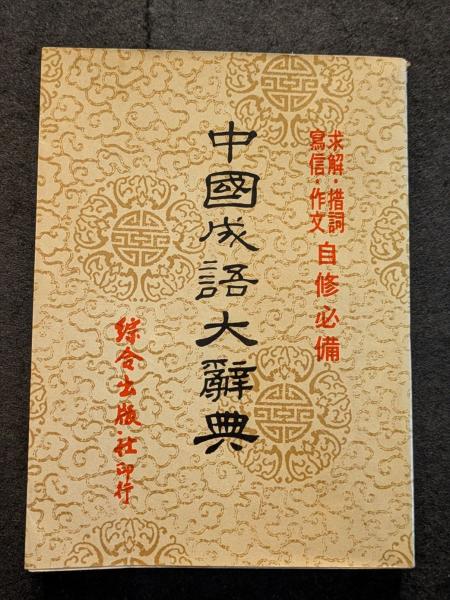 求解·措詞
寫信·作文
自修必備
中國成語大辭典
綜合出版社印行